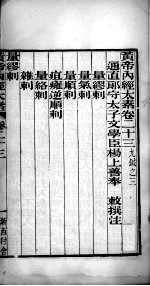 黃帝內經太素卷二十三 九鍼之三
通直郎守太子文學臣楊上善奉 敕撰注
量繆刺
量氣刺
量順刺
疽癰逆順刺
量絡刺
雜刺
量繆刺
黃帝內經太素卷二十三